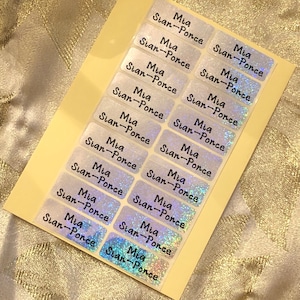 Mia
Sian--Ponce
Mia
Sian--Ponce
Mia
Sian--Ponce
Mia
Sian--Ponce
Mia
Sian--Ponce
Mia
Sian--Ponce
Mia
Sian--Ponce
Mia
Sian--Ponce
Mia
Sian--Ponce
Mia
Sian--Ponce
Mia
Sian--Ponce
Mia
Sian--Ponce
Mia
Sian--Ponce
Mia
Sian--Ponce
Mia
Sian--Ponce
Mia
Sian--Ponce
Mia
Sian--Ponce
Mia
Sian--Ponce